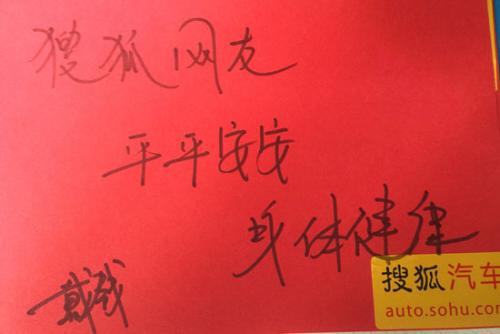 搜狐网友
平平安安
身体健康
戴
搜狐汽车
auto.sohu.com